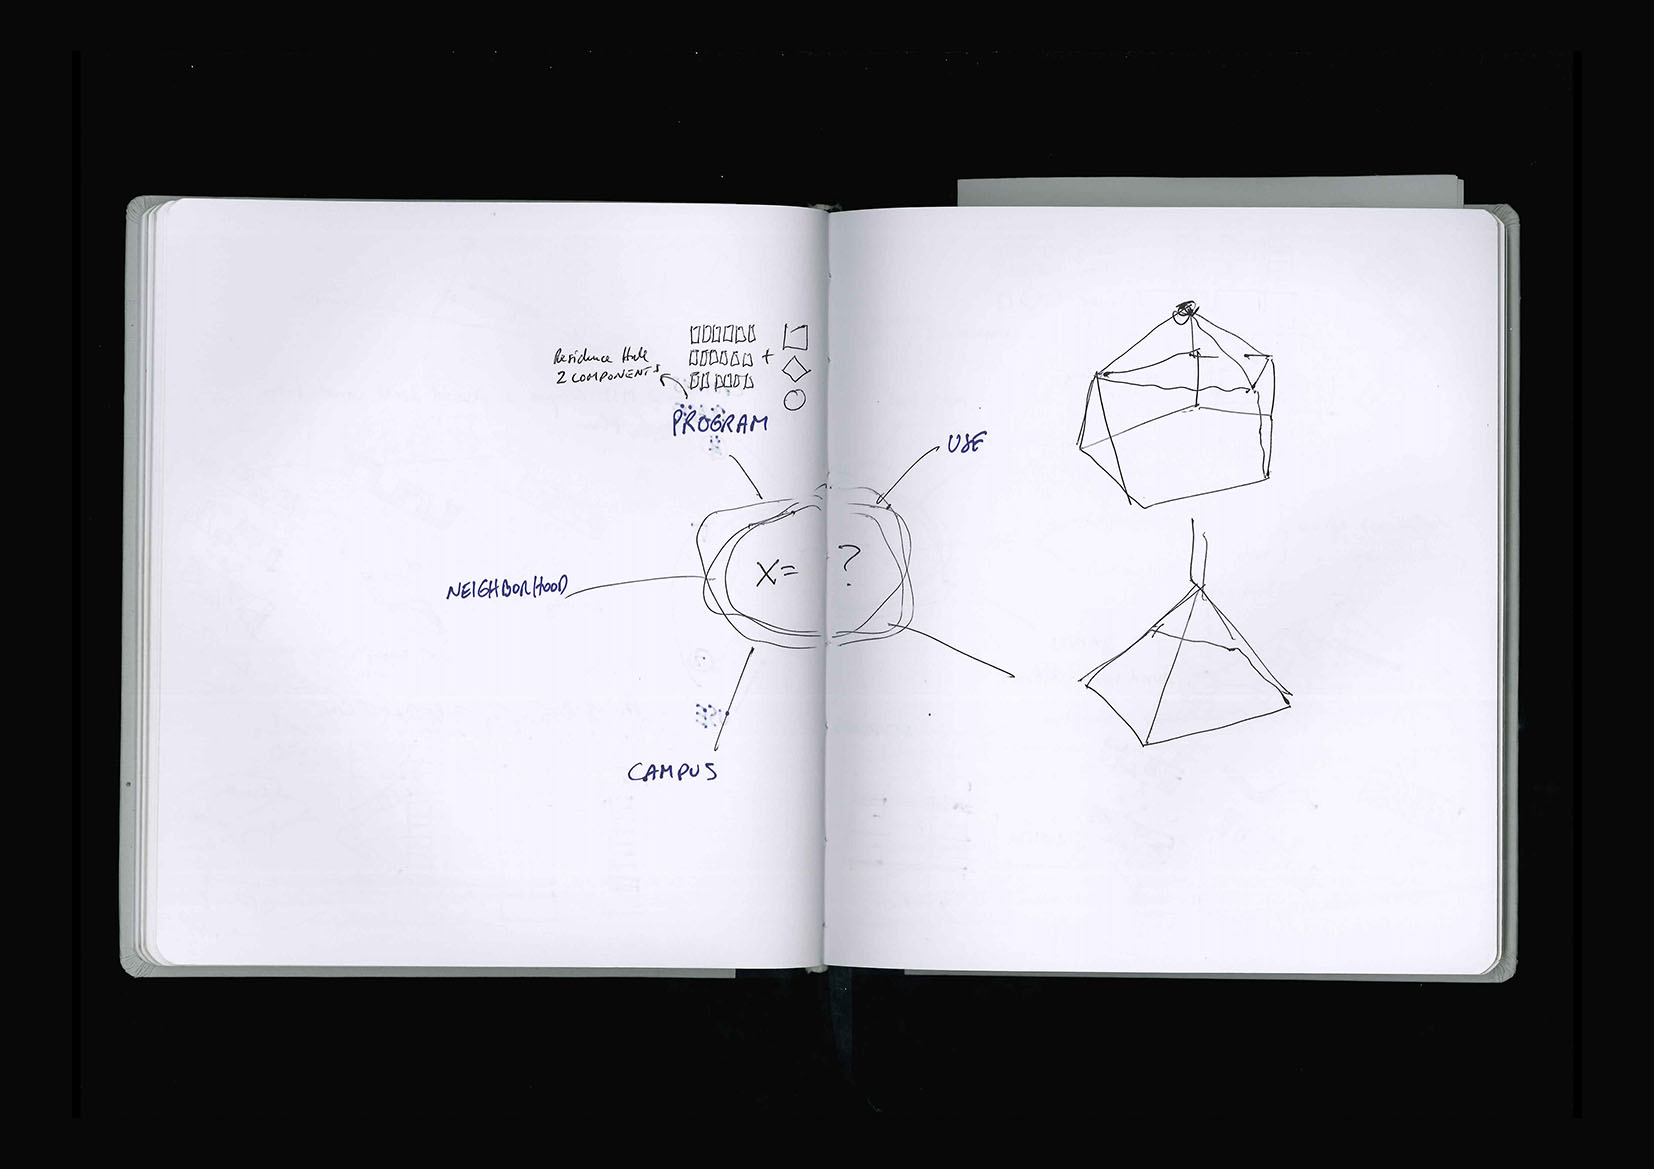 Residence Hall
2 COMPONENTS
+
PROGRAM
USE
X= ?
NEIGHBORHOOD
CAMPUS